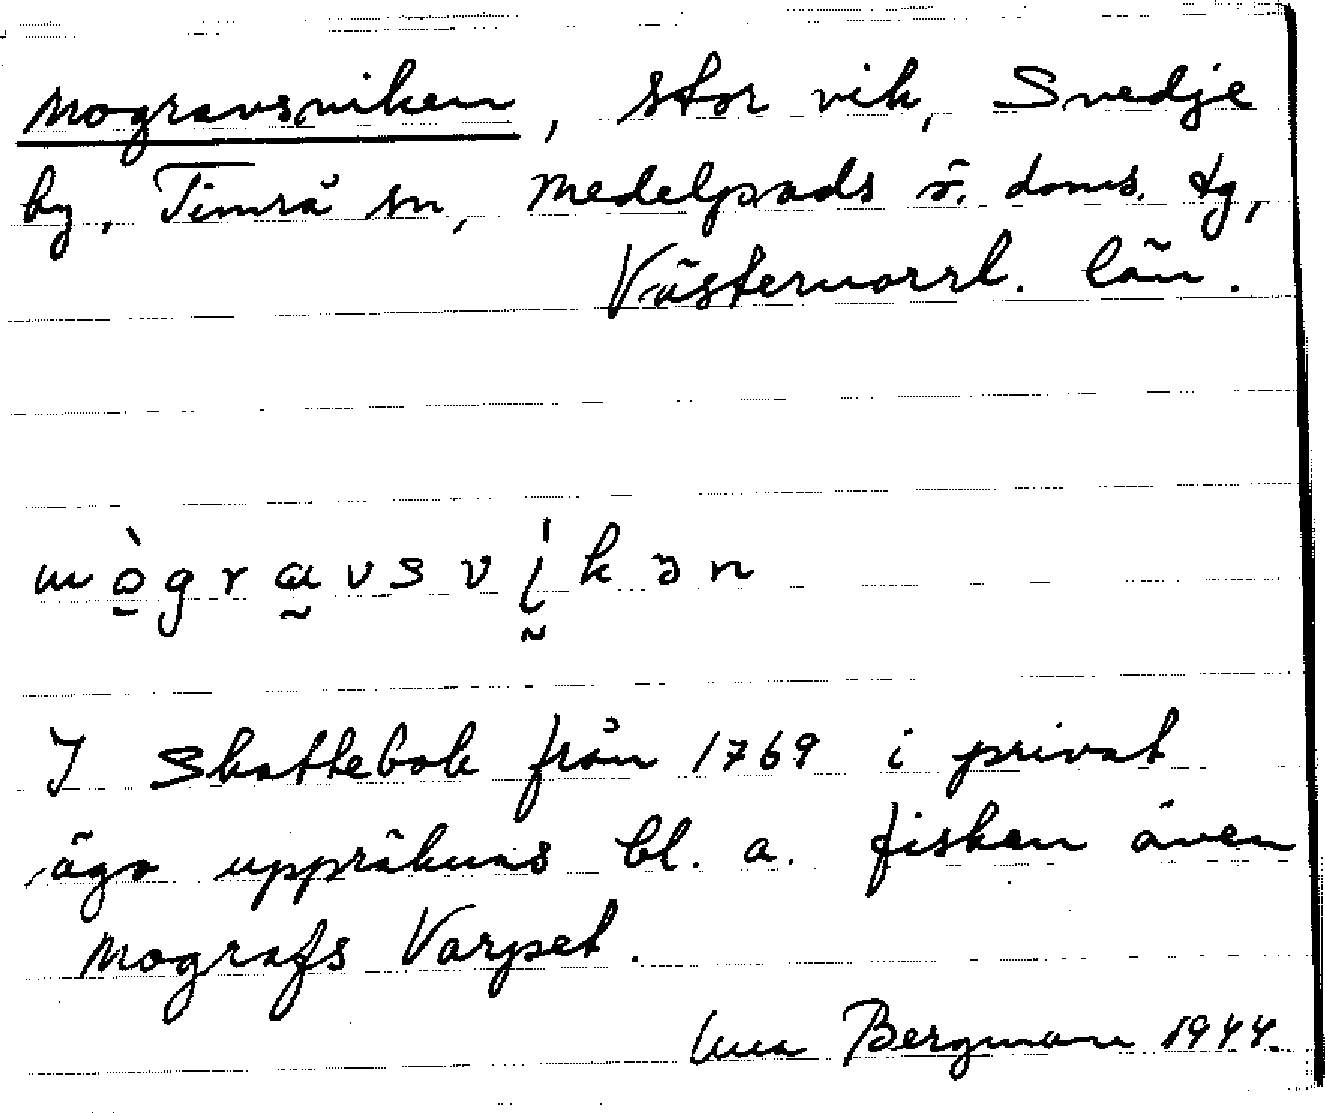 Mogravsviken, stor vik, Svedje
by, Timrå sn, Medelpads ö. doms. tg,
Västernorrl. län.
mògravsvíkən
I Skattebok från 1769 i privat
ägo uppräknas bl. a. fisken även
Mografs Varpet.
Bergman 1944.